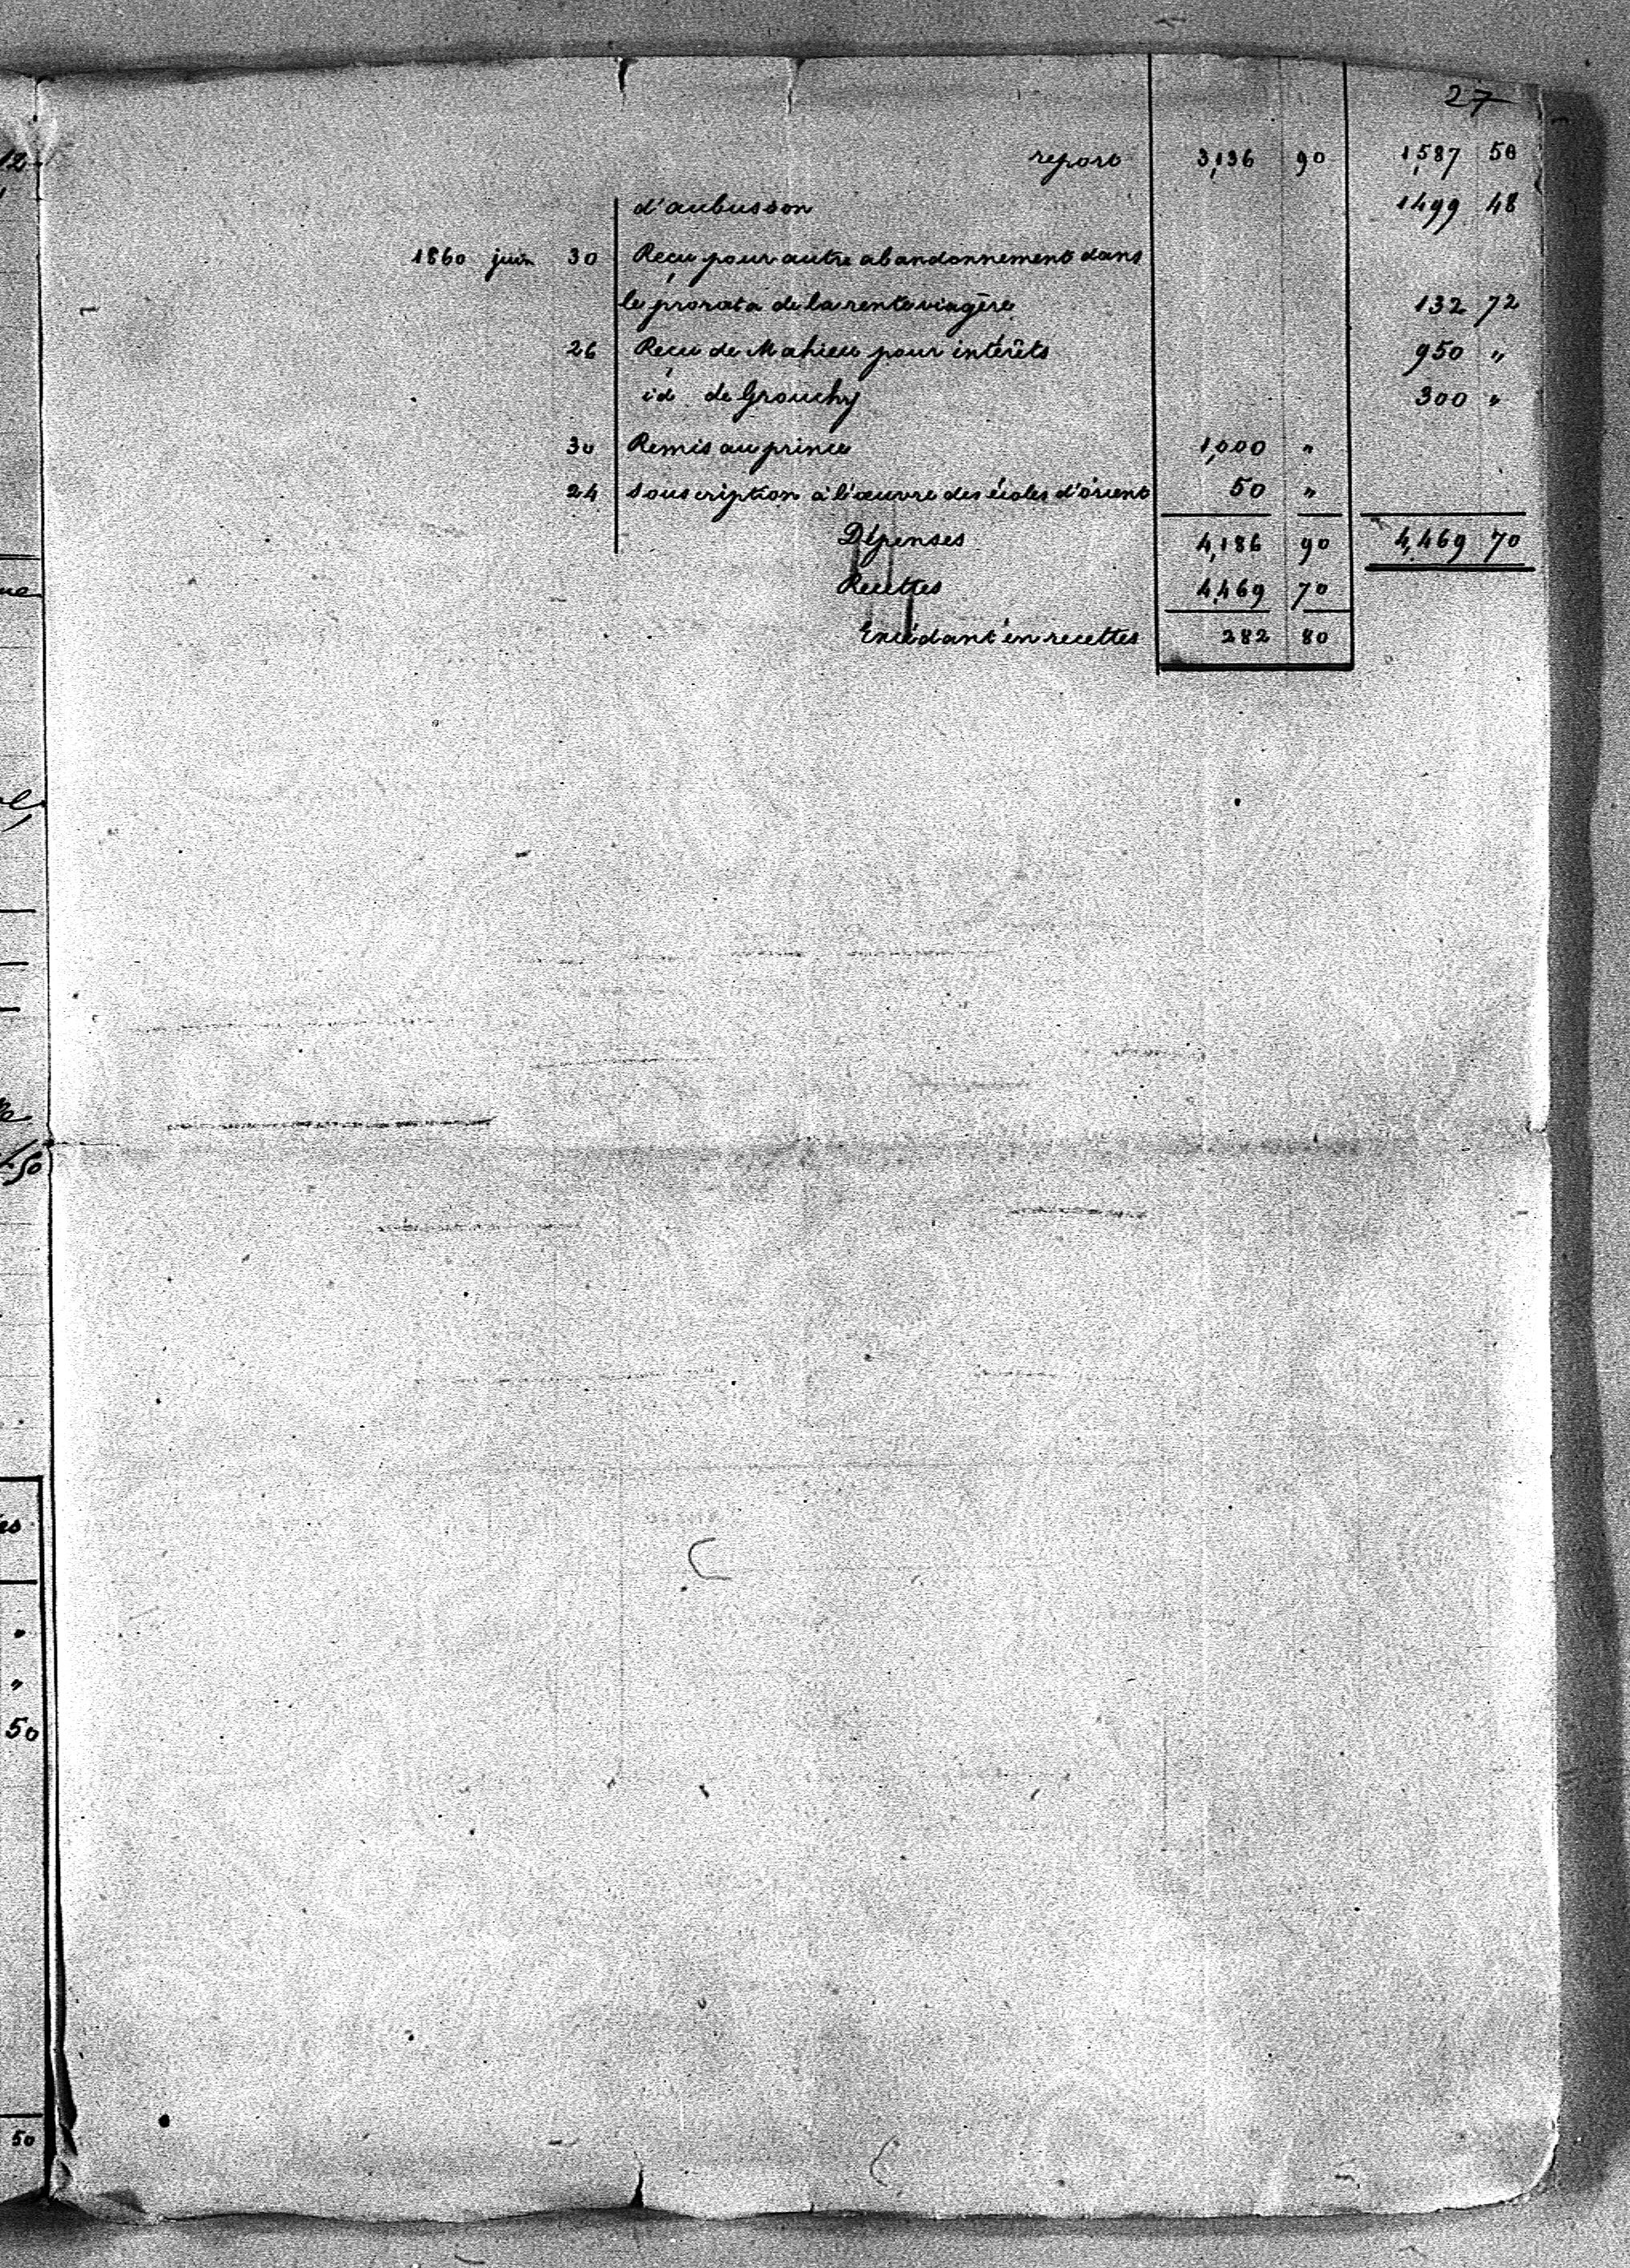 27
report 3,136 90 1,587 50
d'aubusson 1499 48
1860 juin 30 Reçu pour autre abandonnement dans
le prorata de la rente viagère 132 72
26 Reçu de Mahieu pour intérêts 950 "
id de Grouchy 300 "
30 Remis au prince 1,000 "
24 souscription à l'œuvre des écoles d'orient 50 "
Dépenses 4,186 90 4,469 70
Recettes 4,469 70
Excédant en recettes 282 80